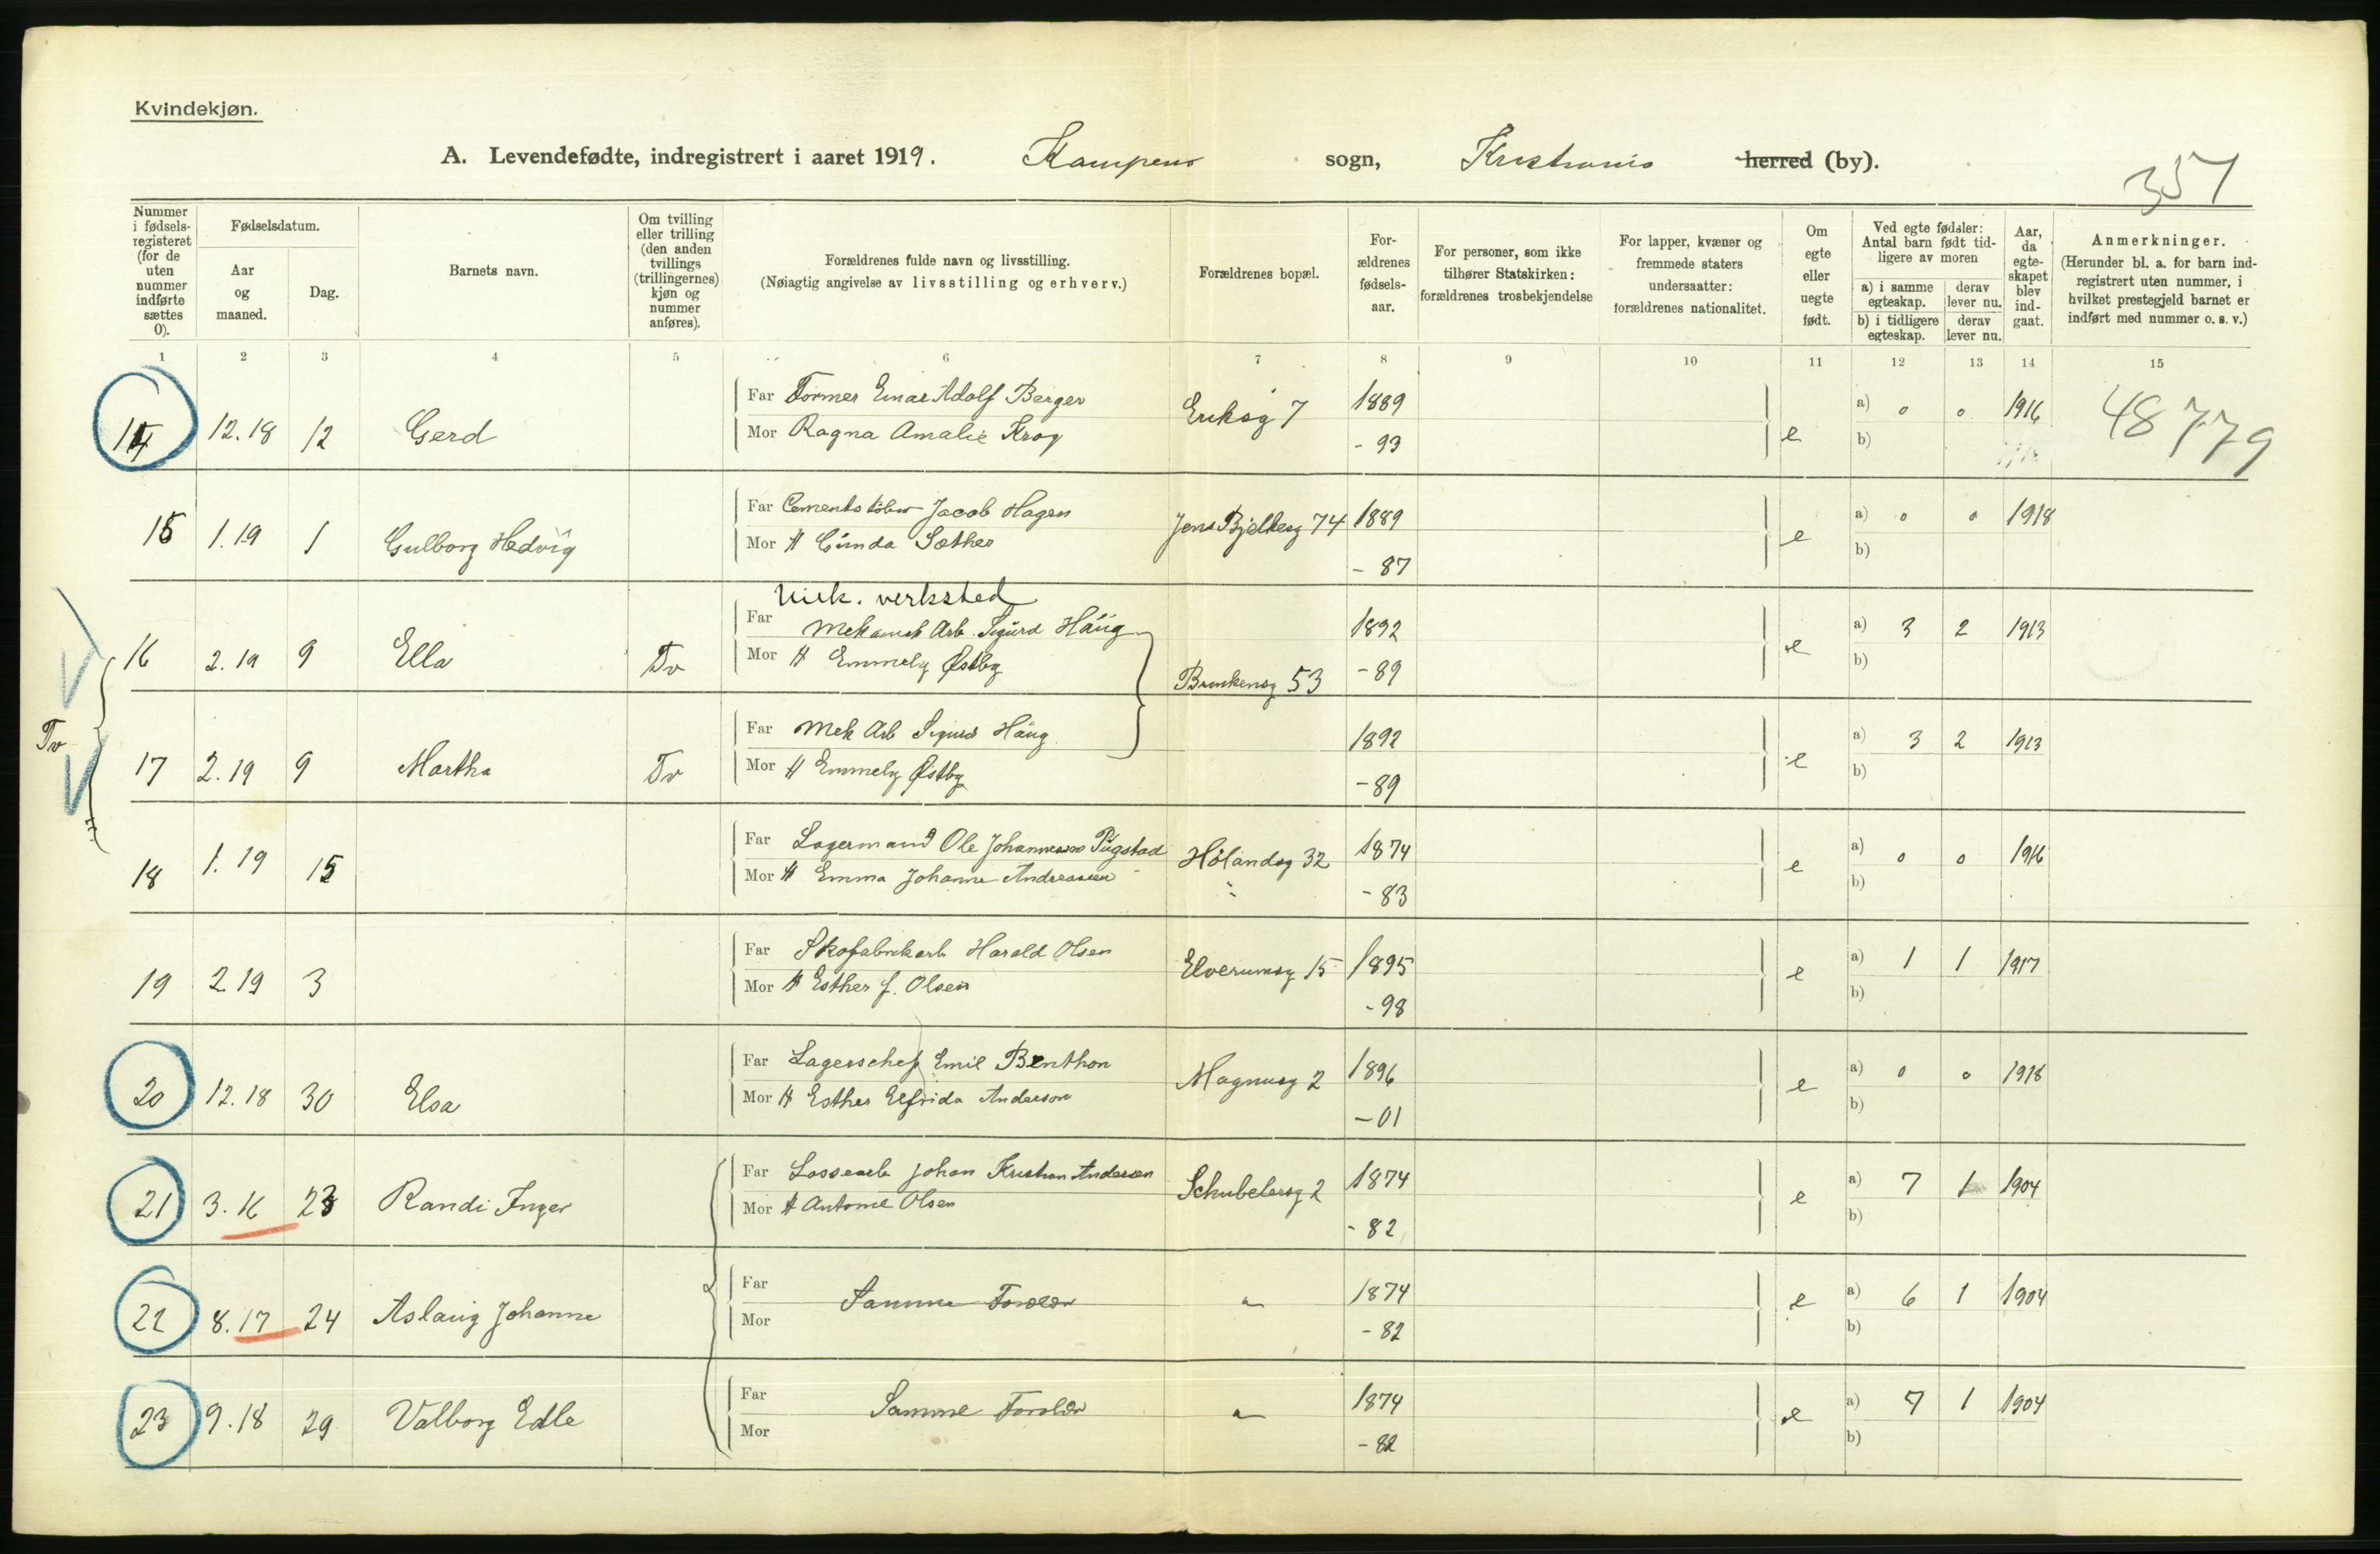 Kvindekjøn.
A. Levendefødte, indregistrert i aaret 1919. Kampens sogn, Kristiania herred (by).
357
Nummer i fødselsregisteret (for de uten nummer indførte sættes 0).
Fødselsdatum.
Aar og maaned.
Dag.
Barnets navn.
Om tvilling eller trilling (den anden tvillings (trillingernes) kjøn og nummer anføres).
Forældrenes fulde navn og livsstilling.
(Nøiagtig angivelse av livsstilling og erhverv.)
Forældrenes bopæl.
Forældrenes fødselsaar.
For personer, som ikke tilhører Statskirken: forældrenes trosbekjendelse
For lapper, kvæner og fremmede staters undersaatter: forældrenes nationalitet.
Om egte eller uegte født.
Ved egte fødsler: Antal barn født tidligere av moren
a) i samme egteskap. derav lever nu.
b) i tidligere egteskap. derav lever nu.
Aar, da egteskapet blev indgaat.
Anmerkninger.
(Herunder bl. a. for barn indregistrert uten nummer, i hvilket prestegjeld barnet er indført med nummer o. s. v.)
1 2 3 4 5 6 7 8 9 10 11 12 13 14 15
14 12.18 12 Gerd Far Former Einar Adolf Berger Eriksg 7 1889 e a) 0 0 1916 48779
Mor Ragna Amalie Krog - 93 b)
15 1.19 1 Gulborg Hedvig Far Jacob Hagen Jens Bjelkesg 74 1889 e a) 0 0 1918
Mor H Gunda Sæther - 87 b)
Mek. verksted
16 2.19 9 Ella Tv Far Mekanisk Arb. Sigurd Haug 1892 e a) 3 2 1913
Mor H Emmely Østby Brinkensg 53 - 89 b)
Tv
17 2.19 9 Martha Tv Far Mek Arb Sigurd Haug 1892 e a) 3 2 1913
Mor H Emmely Østby - 89 b)
18 1.19 15 Far Lagermand Ole Johannessen Hølandsg 32 1874 e a) 0 0 1916
Mor H Emma Johanne Andreassen " - 83 b)
19 2 19 3 Far Skofabrikarb Harald Olsen Elverumsg 15 1895 e a) 1 1 1917
Mor H Esther J. Olsen - 98 b)
20 12.18 30 Elsa Far Lagerschef Emil Benthon Magnusg 2 1896 e a) 0 0 1918
Mor H Esther Elfrida Anderson - 01 b)
21 3.16 23 Randi Inger Far Lossearb Johan Kristian Andersen Schubelersg 2 1874 e a) 7 1 1904
Mor H Antonie Olsen - 82 b)
22 8.17 24 Aslaug Johanne Far Samme Foreldr " 1874 e a) 6 1 1904
Mor - 82 b)
23 9.18 29 Valborg Edle Far Samme Foreldr " 1874 e a) 7 1 1904
Mor - 82 b)